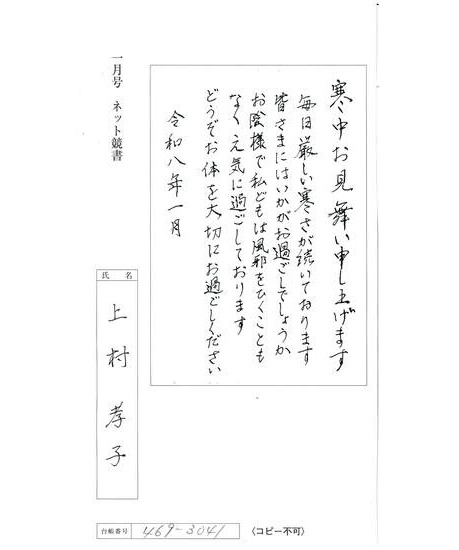 寒中お見舞い申し上げます
毎日厳しい寒さが続いております
皆さまにはいかがお過ごしでしょうか
お陰様で私どもは風邪をひくことも
なく元気に過ごしております
どうぞお体を大切にお過ごしください
令和八年一月
一月号 ネット競書
氏名
上村 孝子
台帳番号 469-3041
〈コピー不可〉